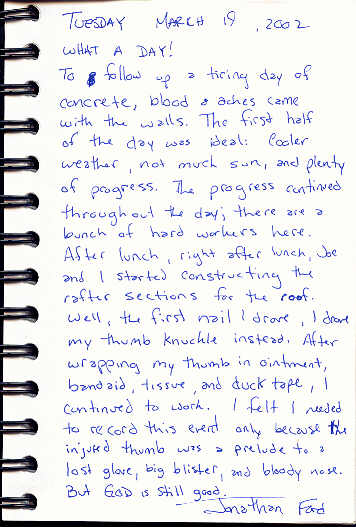 TUESDAY MARCH 19, 2002
WHAT A DAY!
To follow up a tiring day of
concrete, blood & aches came
with the walls. The first half
of the day was ideal: Cooler
weather, not much sun, and plenty
of progress. The progress continued
throughout the day; there are a
bunch of hard workers here.
After lunch, right after lunch, Joe
and I started constructing the
rafter sections for the roof.
Well, the first nail I drove, I drove
my thumb knuckle instead. After
wrapping my thumb in ointment,
bandaid, tissue, and duck tape, I
continued to work. I felt I needed
to record this event only because the
injured thumb was a prelude to a
lost glove, big blister, and bloody nose.
But GOD is still good.
Jonathan Ford